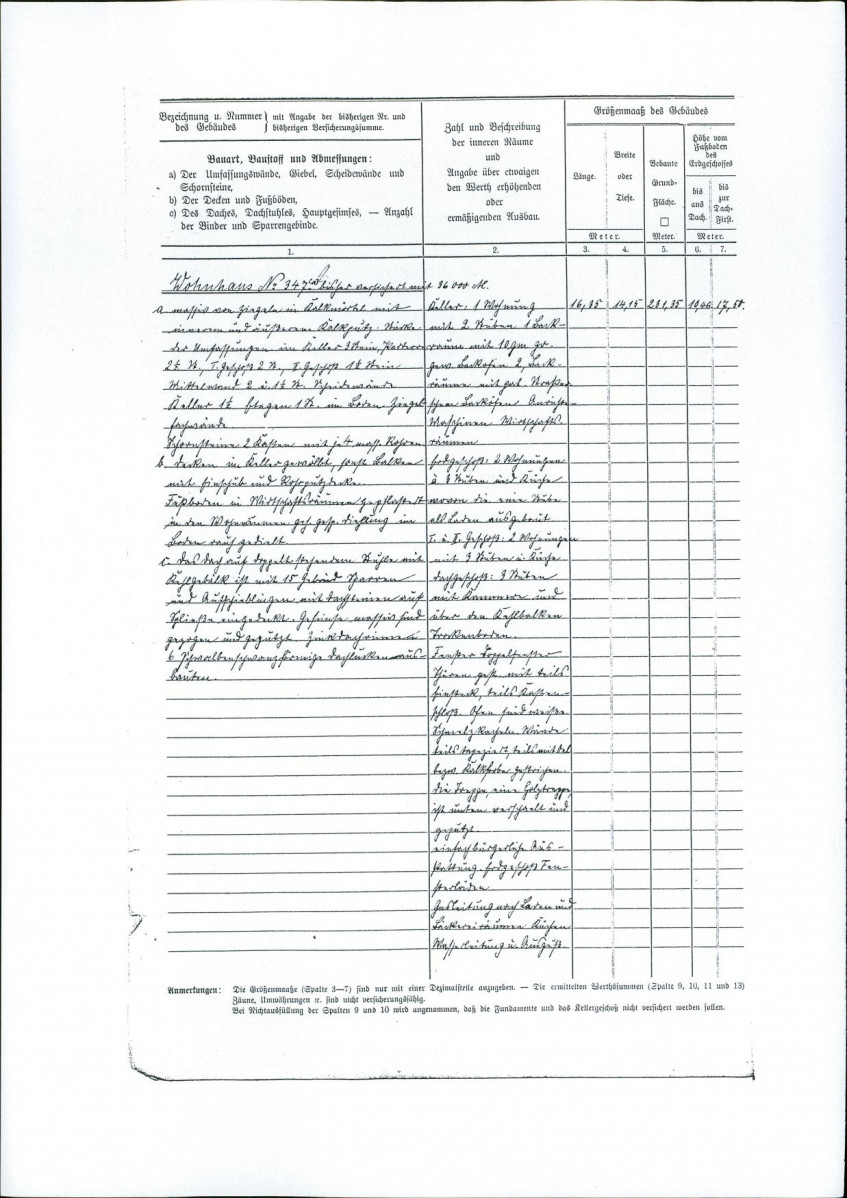 Bezeichnung u. Nummer des Gebäudes } mit Angabe der bisherigen Nr. und bisherigen Versicherungssumme.
Bauart, Baustoff und Abmessungen:
a) Der Umfassungswände, Giebel, Scheidewände und
Schornsteine,
b) Der Decken und Fußböden,
c) Des Daches, Dachstuhles, Hauptgesimses, — Anzahl
der Binder und Sparrengebinde.
1.
Zahl und Beschreibung
der inneren Räume
und
Angabe über etwaigen
den Werth erhöhenden
oder
ermäßigenden Ausbau.
2.
Größenmaaß des Gebäudes
Länge.
Breite
oder
Tiefe.
Bebaute
Grund-
Fläche.
□
Höhe vom
Fußboden
des
Erdgeschosses
bis
ans
Dach.
bis
zur
Dach-
First.
Meter.
Meter.
Meter.
3.
4.
5.
6.
7.
Wohnhaus No 347 bisher versichert mit 36 000 M.
a. massiv von Ziegeln in Kalkmörtel mit
innerem und äußerem Kalkputz. Stärke
der Umfassungen im Keller 3 Stein, Parterre
2½ St., I. Geschoß 2 St., II. Geschoß 1½ Stein
Mittelwand 2 u. 1½ St. Scheidewände
Keller 1½ Etagen 1 St. im Boden Ziegel-
fachwände
Schornsteine 2 Kasten mit je 4 mass. Rohren
b. Decken im Keller gewölbt, sonst Balken
mit Einschub und Rohrputzdecke.
Fußboden in Wirtschaftsräumen gepflastert
in den Wohnräumen geh. gesp. Dielung im
Boden rauh gedielt.
c. Das Dach auf doppelt stehendem Stuhle mit
Kehlgebälk ist mit 15 Gebind Sparren
und Aufschieblingen mit Dachsteinen auf
Spließe eingedeckt. Gesimse massiv sind
gezogen und geputzt. Zinkdachrinne
6 Schwalbenschwanzförmige Dachlukken aus-
bauten.
Keller: 1 Wohnung
mit 2 Stuben 1 Back-
raum mit 10 qm gr.
gew. Backofen 2 Back-
räume mit
schen Backöfen
Maschinen Wirtschafts-
räumen
Erdgeschoß: 2 Wohnungen
à 3 Stuben und Küche
wovon die eine Stube
als Laden ausgebaut
I. u. II. Geschoß: 2 Wohnungen
mit 3 Stuben u. Küche
Dachgeschoß: 3 Stuben
mit Kammern und
über den Kehlbalken
Trockenboden.
Fenster Doppelfenster
Thüren gest. mit teils
Einsteck, teils Kasten-
schloß. Ofen sind weiße
Schmelzkacheln. Wände
teils tapeziert, teils mit Oel
bezw. Kalkfarbe gestrichen.
Die Treppe, eine Holztreppe,
ist unten verschaelt und
geputzt.
einfach bürgerliche Aus-
stattung. Erdgeschoß Fen-
sterläden.
Gasleitung nach Laden und
Bäckereiräumen Küchen
Wasserleitung u. Ausguß.
16,35 14,15 231,35 17,50.
Anmerkungen: Die Größenmaaße (Spalte 3—7) sind nur mit einer Dezimalstelle anzugeben. — Die ermittelten Werthsummen (Spalte 9, 10, 11 und 13)
Zäune, Umwährungen ꝛc. sind nicht versicherungsfähig.
Bei Nichtausfüllung der Spalten 9 und 10 wird angenommen, daß die Fundamente und das Kellergeschoß nicht versichert werden sollen.